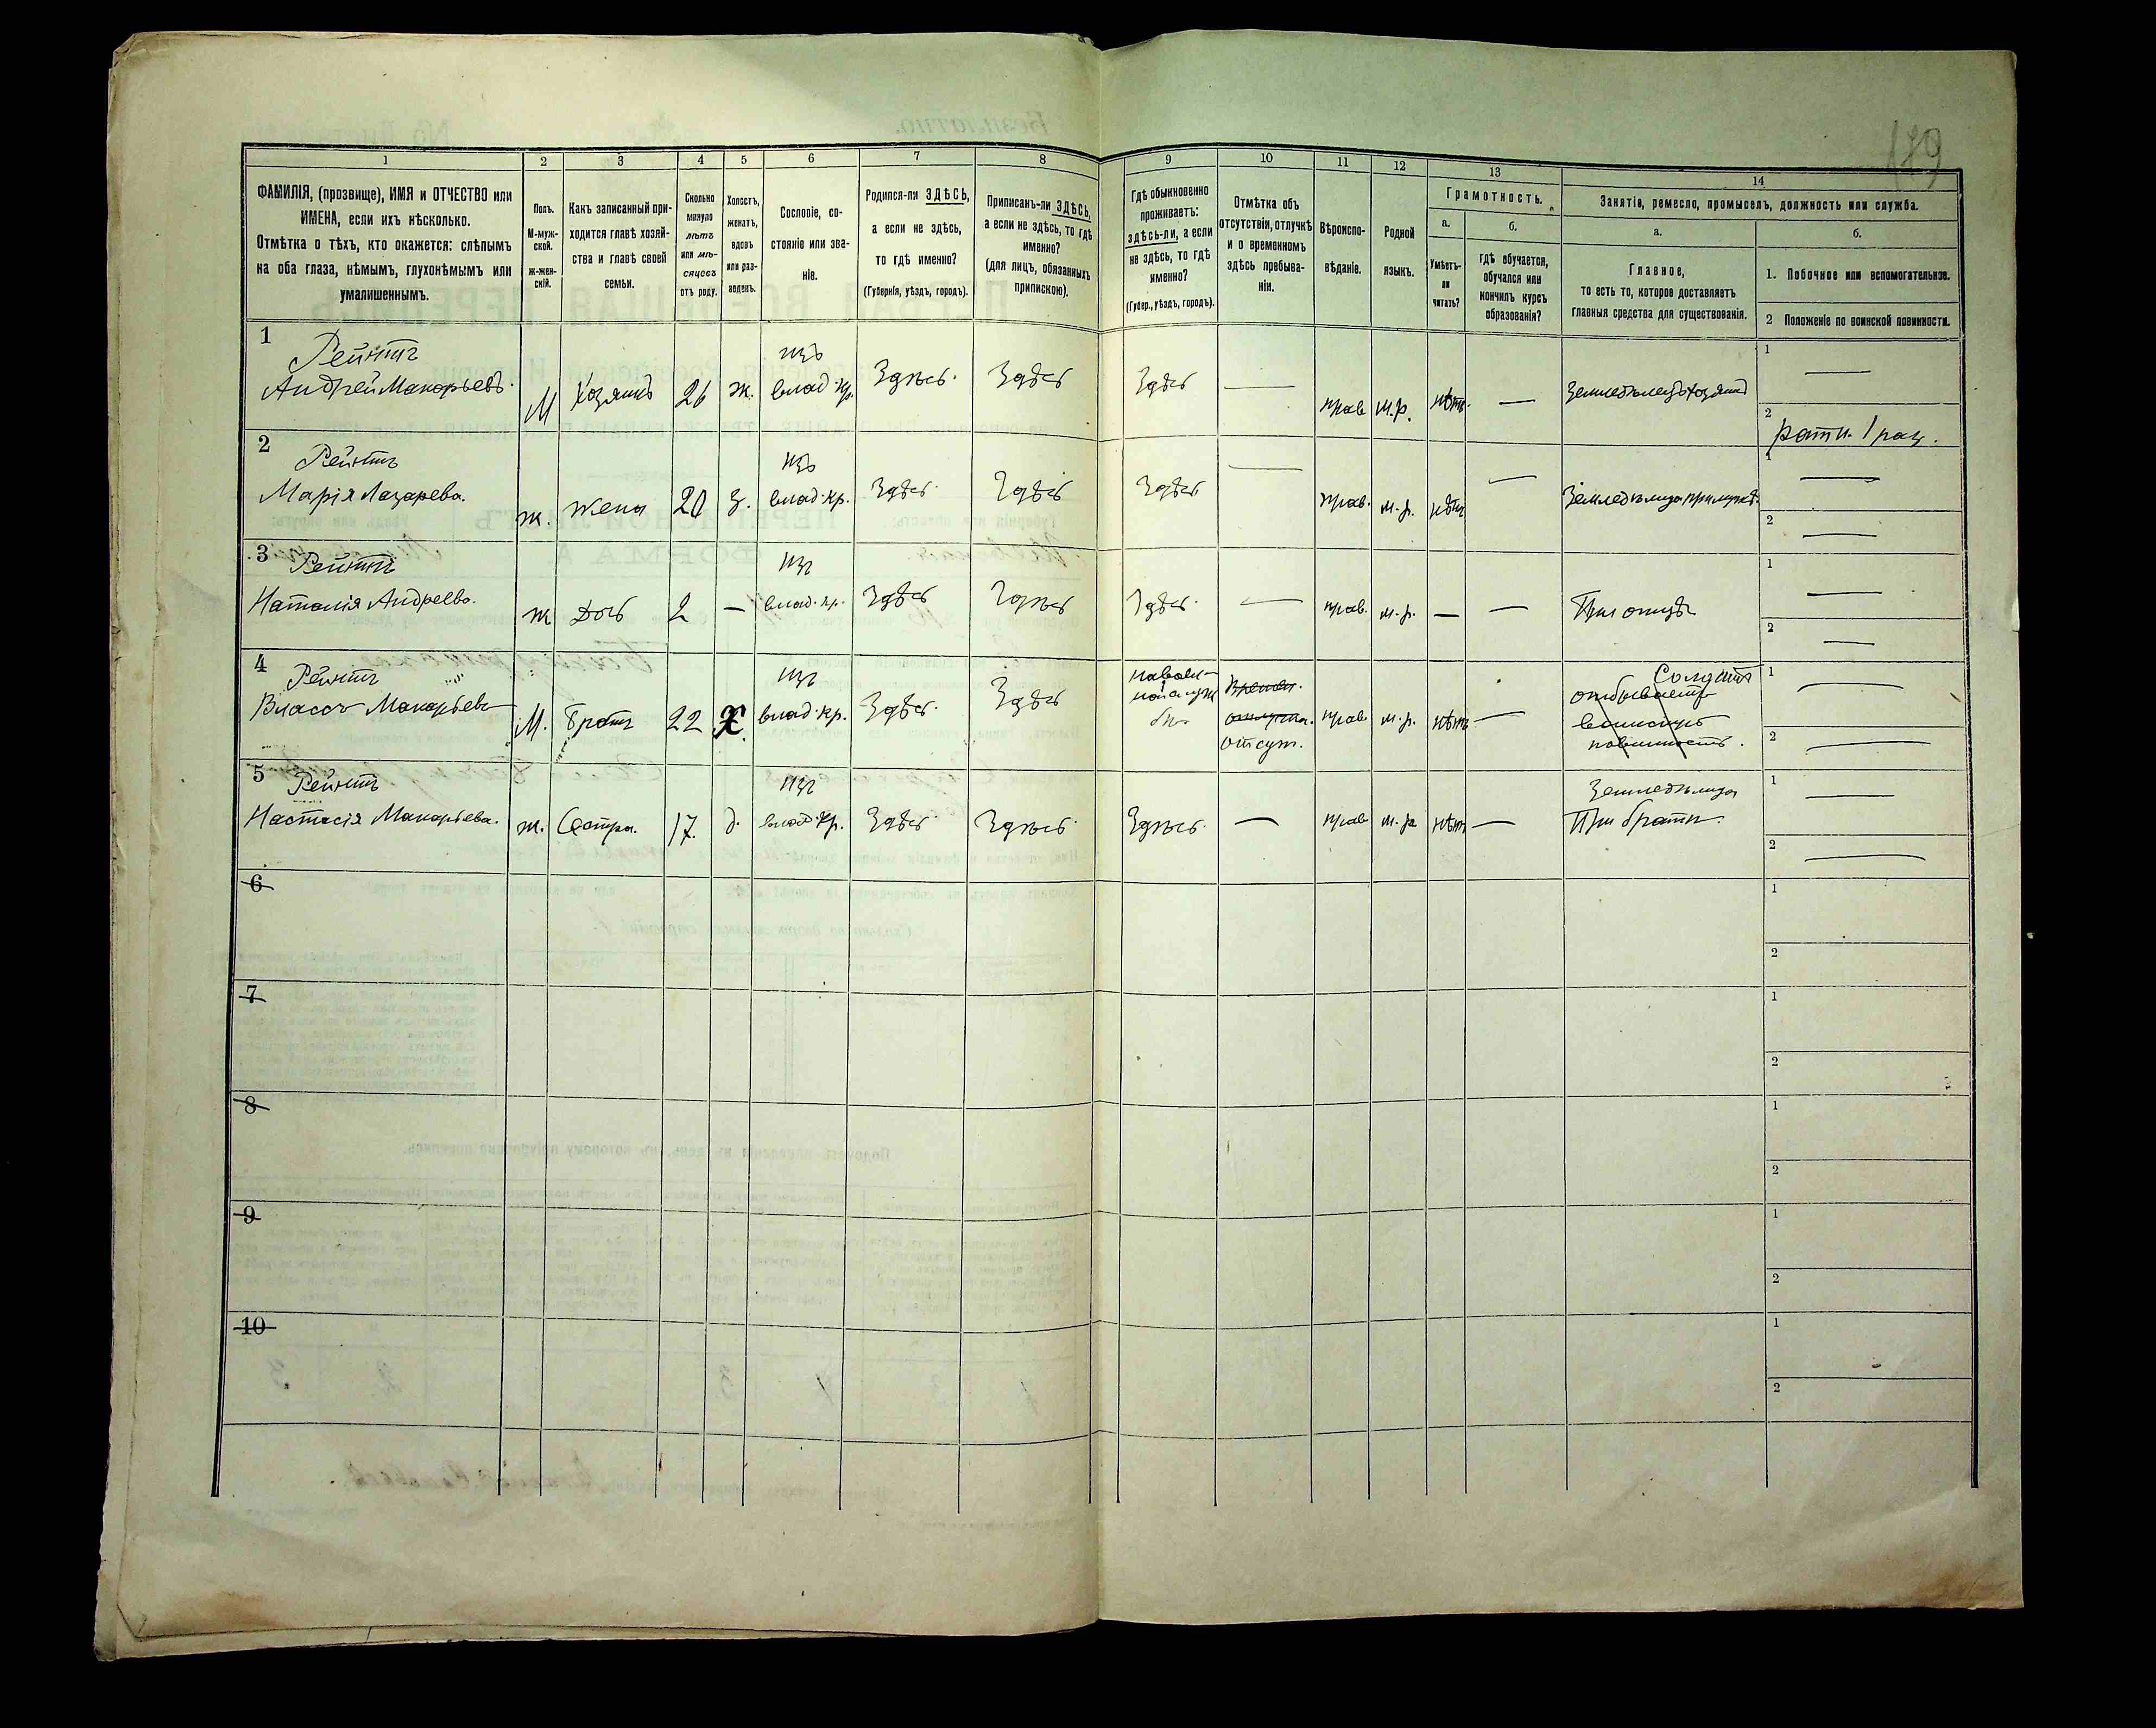 179
1 2 3 4 5 6 7 8 9 10 11 12 13 14
ФАМИЛІЯ, (прозвище), ИМЯ и ОТЧЕСТВО или
ИМЕНА, если ихъ нѣсколько.
Отмѣтка о тѣхъ, кто окажется: слѣпымъ
на оба глаза, нѣмымъ, глухонѣмымъ или
умалишеннымъ.
Полъ.
М-муж-
ской.
ж-жен-
скій.
Какъ записанный при-
ходится главѣ хозяй-
ства и главѣ своей
семьи.
Сколько
минуло
лѣтъ
или мѣ-
сяцевъ
отъ роду.
Холостъ,
женатъ,
вдовъ
или раз-
веденъ.
Сословіе, со-
стояніе или зва-
ніе.
Родился-ли ЗДѢСЬ,
а если не здѣсь,
то гдѣ именно?
(Губернія, уѣздъ, городъ).
Приписанъ-ли ЗДѢСЬ,
а если не здѣсь, то гдѣ
именно?
(для лицъ, обязанныхъ
припискою).
Гдѣ обыкновенно
проживаетъ:
здѣсь-ли, а если
не здѣсь, то гдѣ
именно?
(Губер., уѣздъ, городъ).
Отмѣтка объ
отсутствіи, отлучкѣ
и о временномъ
здѣсь пребыва-
ніи.
Вѣроиспо-
вѣданіе.
Родной
языкъ.
Грамотность.
а.
Умѣетъ-
ли
читать?
б.
гдѣ обучается,
обучался или
кончилъ курсъ
образованія?
Занятіе, ремесло, промыселъ, должность или служба.
а.
Главное,
то есть то, которое доставляетъ
главныя средства для существованія.
б.
1. Побочное или вспомогательное.
2 Положеніе по воинской повинности.
1
Рейнтъ
Андрей Макорьевъ.
М Хозяинъ 26 ж. изъ влад. кр. Здѣсь. Здѣсь Здѣсь — прав м.р. нѣтъ. — Земледѣлецъ хозяинъ
1 —
2 ратн. 1 раз.
2
Рейнтъ
Марія Лазарева.
ж. жена 20 з. изъ влад. кр. Здѣсь Здѣсь Здѣсь — прав. м.р. нѣтъ —
1 —
2 —
3
Рейнтъ
Наталія Андреева.
ж Дочь 2 — изъ влад. кр. Здѣсь Здѣсь Здѣсь. — прав. м.р. — — При отцѣ
1 —
2 —
4
Рейнтъ
Власъ Макорьевъ
М. Братъ 22 Х. изъ влад. кр. Здѣсь. Здѣсь
времен.
отлучка.
отсут.
прав м.р. нѣтъ —
Солдатъ
отбываетъ
воинскую
повинность.
1 —
2 —
5
Рейнтъ
Настасія Макорьева.
ж. Сестра. 17. д. изъ влад. кр. Здѣсь. Здѣсь. Здѣсь. — прав м.р нѣтъ —
Земледѣлица
При братѣ.
1 —
2 —
6
1
2
7
1
2
8
1
2
9
1
2
10
1
2